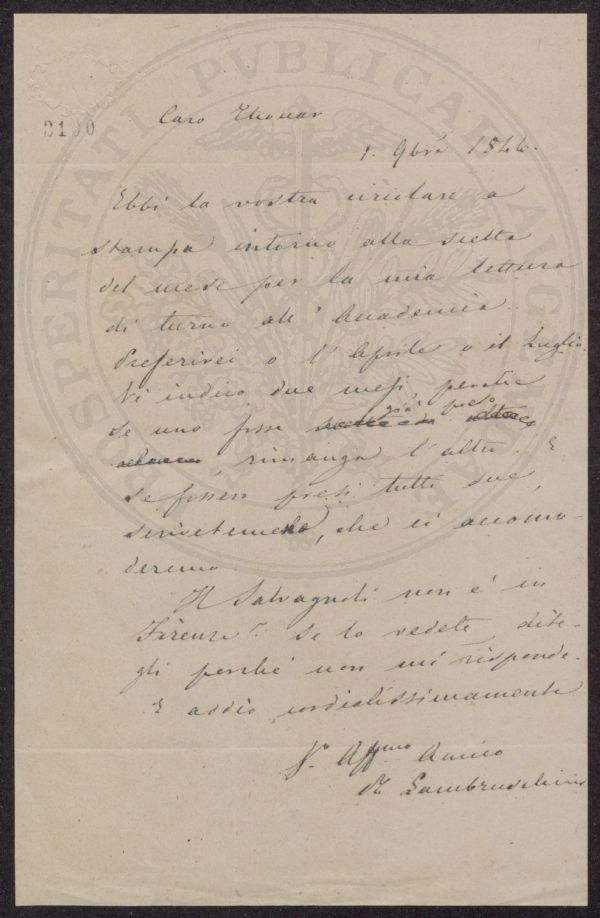 2100
Caro Thouar
1. 9bre 1846.
Ebbi la vostra circolare a
stampa intorno alla scelta
del mese per la mia lettura
di turno all' Accademia.
Preferirei o l' Aprile o il Luglio.
Vi indico due mesi perchè
se uno fosse già preso
, rimanga l'altro. E
se fossero presi tutti due,
scrivetemelo, che ci accomo-
deremo.
Il Salvagnoli non è in
Firenze? Se lo vedete, dite-
gli perchè non mi risponde.
E addio cordialissimamente
Vo. Affmo Amico
R Lambruschini
PROSPERITATI PVBLICAE AVGENDAE